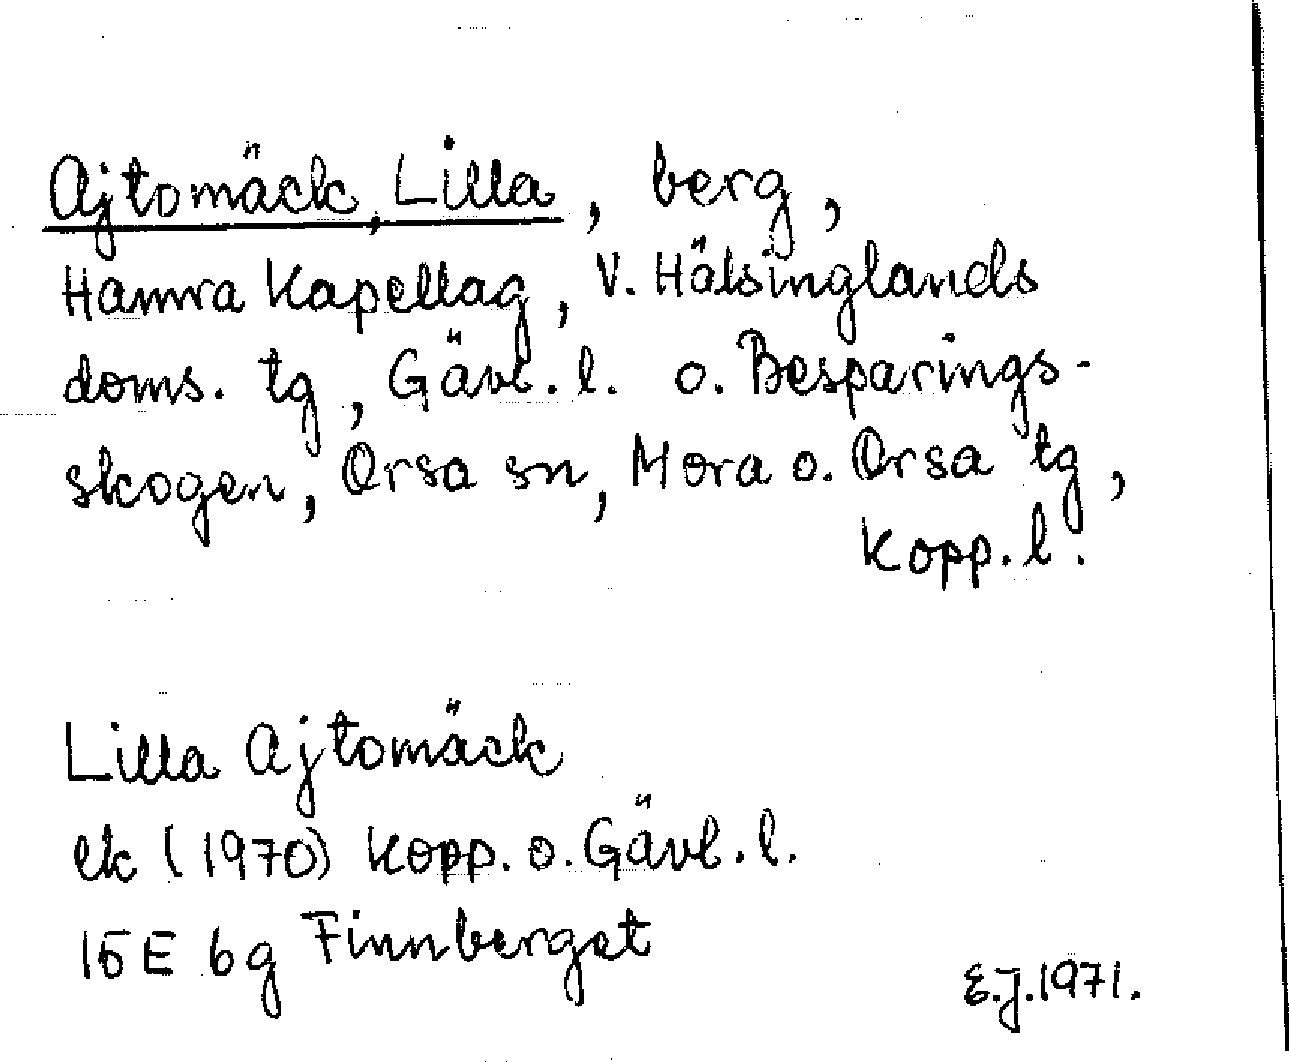 Ajtomäck, Lilla, berg,
Hamra Kapellag, V. Hälsinglands
doms. tg, Gävl. l. o. Besparings-
skogen, Orsa sn, Mora o. Orsa tg,
Kopp. l.
Lilla Ajtomäck
ek (1970) Kopp. o. Gävl. l.
15 E 6g Finnberget
E.J. 1971.